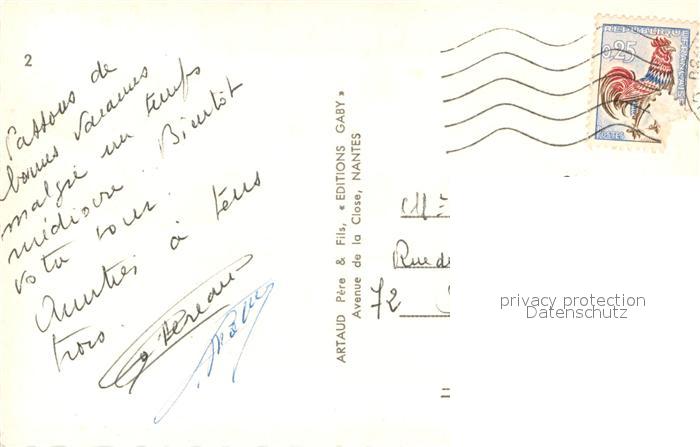 2
Passons de
bonnes vacances
malgré un temps
médiocre. Bientôt
votre tour.
Amitiés à tous
trois.
ARTAUD Père & Fils, « EDITIONS GABY »
Avenue de la Close, NANTES
0,25
POSTES
Rue de
72
privacy protection
Datenschutz